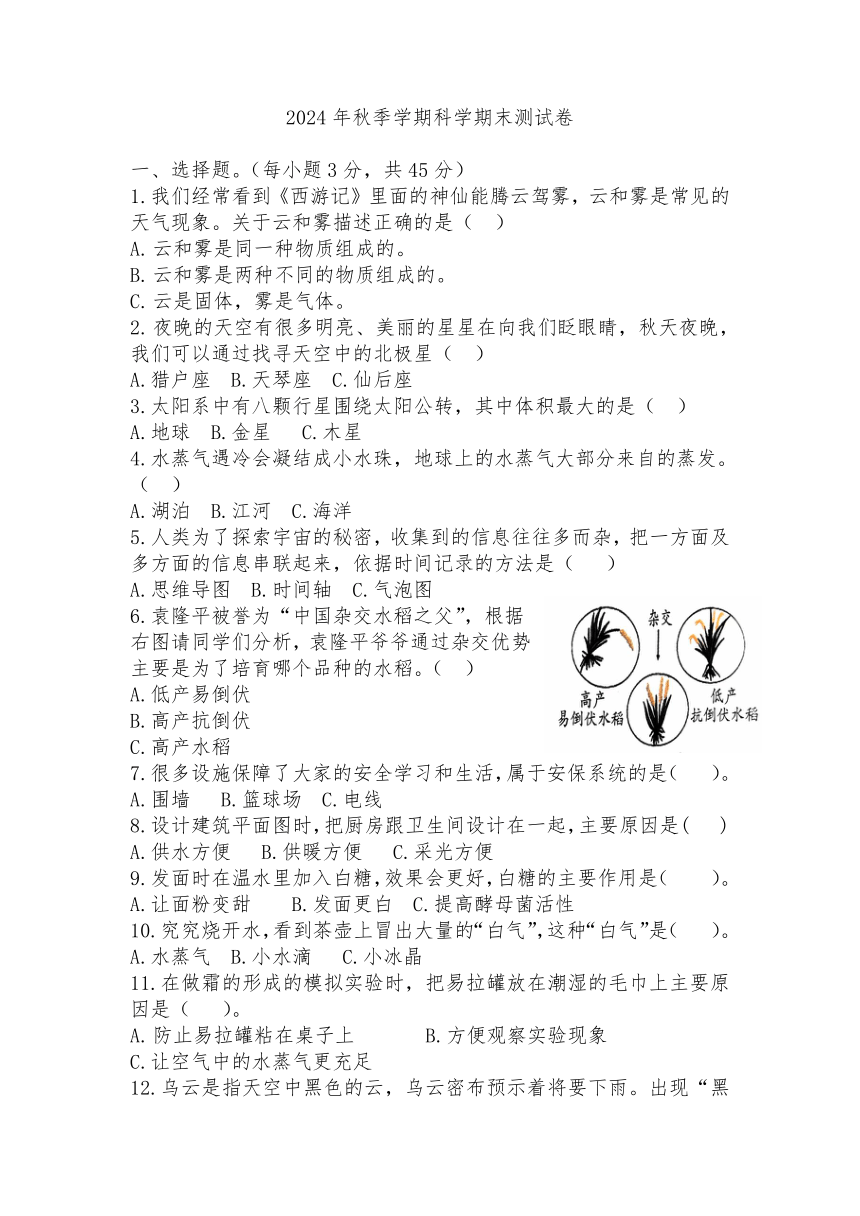 2024年秋季学期科学期末测试卷
一、选择题。（每小题3分，共45分）
1.我们经常看到《西游记》里面的神仙能腾云驾雾，云和雾是常见的
天气现象。关于云和雾描述正确的是（　）
A. 云和雾是同一种物质组成的。
B. 云和雾是两种不同的物质组成的。
C. 云是固体，雾是气体。
2. 夜晚的天空有很多明亮、美丽的星星在向我们眨眼睛，秋天夜晚，
我们可以通过找寻天空中的北极星（　）
A.猎户座　B.天琴座　C.仙后座
3.太阳系中有八颗行星围绕太阳公转，其中体积最大的是（　）
A.地球　B.金星　 C.木星
4.水蒸气遇冷会凝结成小水珠，地球上的水蒸气大部分来自的蒸发。
（　）
A.湖泊　B.江河　C.海洋
5.人类为了探索宇宙的秘密，收集到的信息往往多而杂，把一方面及
多方面的信息串联起来，依据时间记录的方法是（　 ）
A.思维导图　B.时间轴　C.气泡图
6.袁隆平被誉为“中国杂交水稻之父”，根据
右图请同学们分析，袁隆平爷爷通过杂交优势
主要是为了培育哪个品种的水稻。（　）
A.低产易倒伏
B.高产抗倒伏
C.高产水稻
杂交
高产
易倒伏水稻
低产
抗倒伏水稻
7.很多设施保障了大家的安全学习和生活,属于安保系统的是(　 )。
A.围墙　 B.篮球场　C.电线
8.设计建筑平面图时,把厨房跟卫生间设计在一起,主要原因是(　 )
A.供水方便　 B.供暖方便　 C.采光方便
9.发面时在温水里加入白糖,效果会更好,白糖的主要作用是(　　)。
A.让面粉变甜　　B.发面更白　C.提高酵母菌活性
10.究究烧开水,看到茶壶上冒出大量的“白气”,这种“白气”是(　 )。
A.水蒸气　B.小水滴　 C.小冰晶
11.在做霜的形成的模拟实验时，把易拉罐放在潮湿的毛巾上主要原
因是（　 ）。
A. 防止易拉罐粘在桌子上　　　　B.方便观察实验现象
C.让空气中的水蒸气更充足
12.乌云是指天空中黑色的云，乌云密布预示着将要下雨。出现“黑